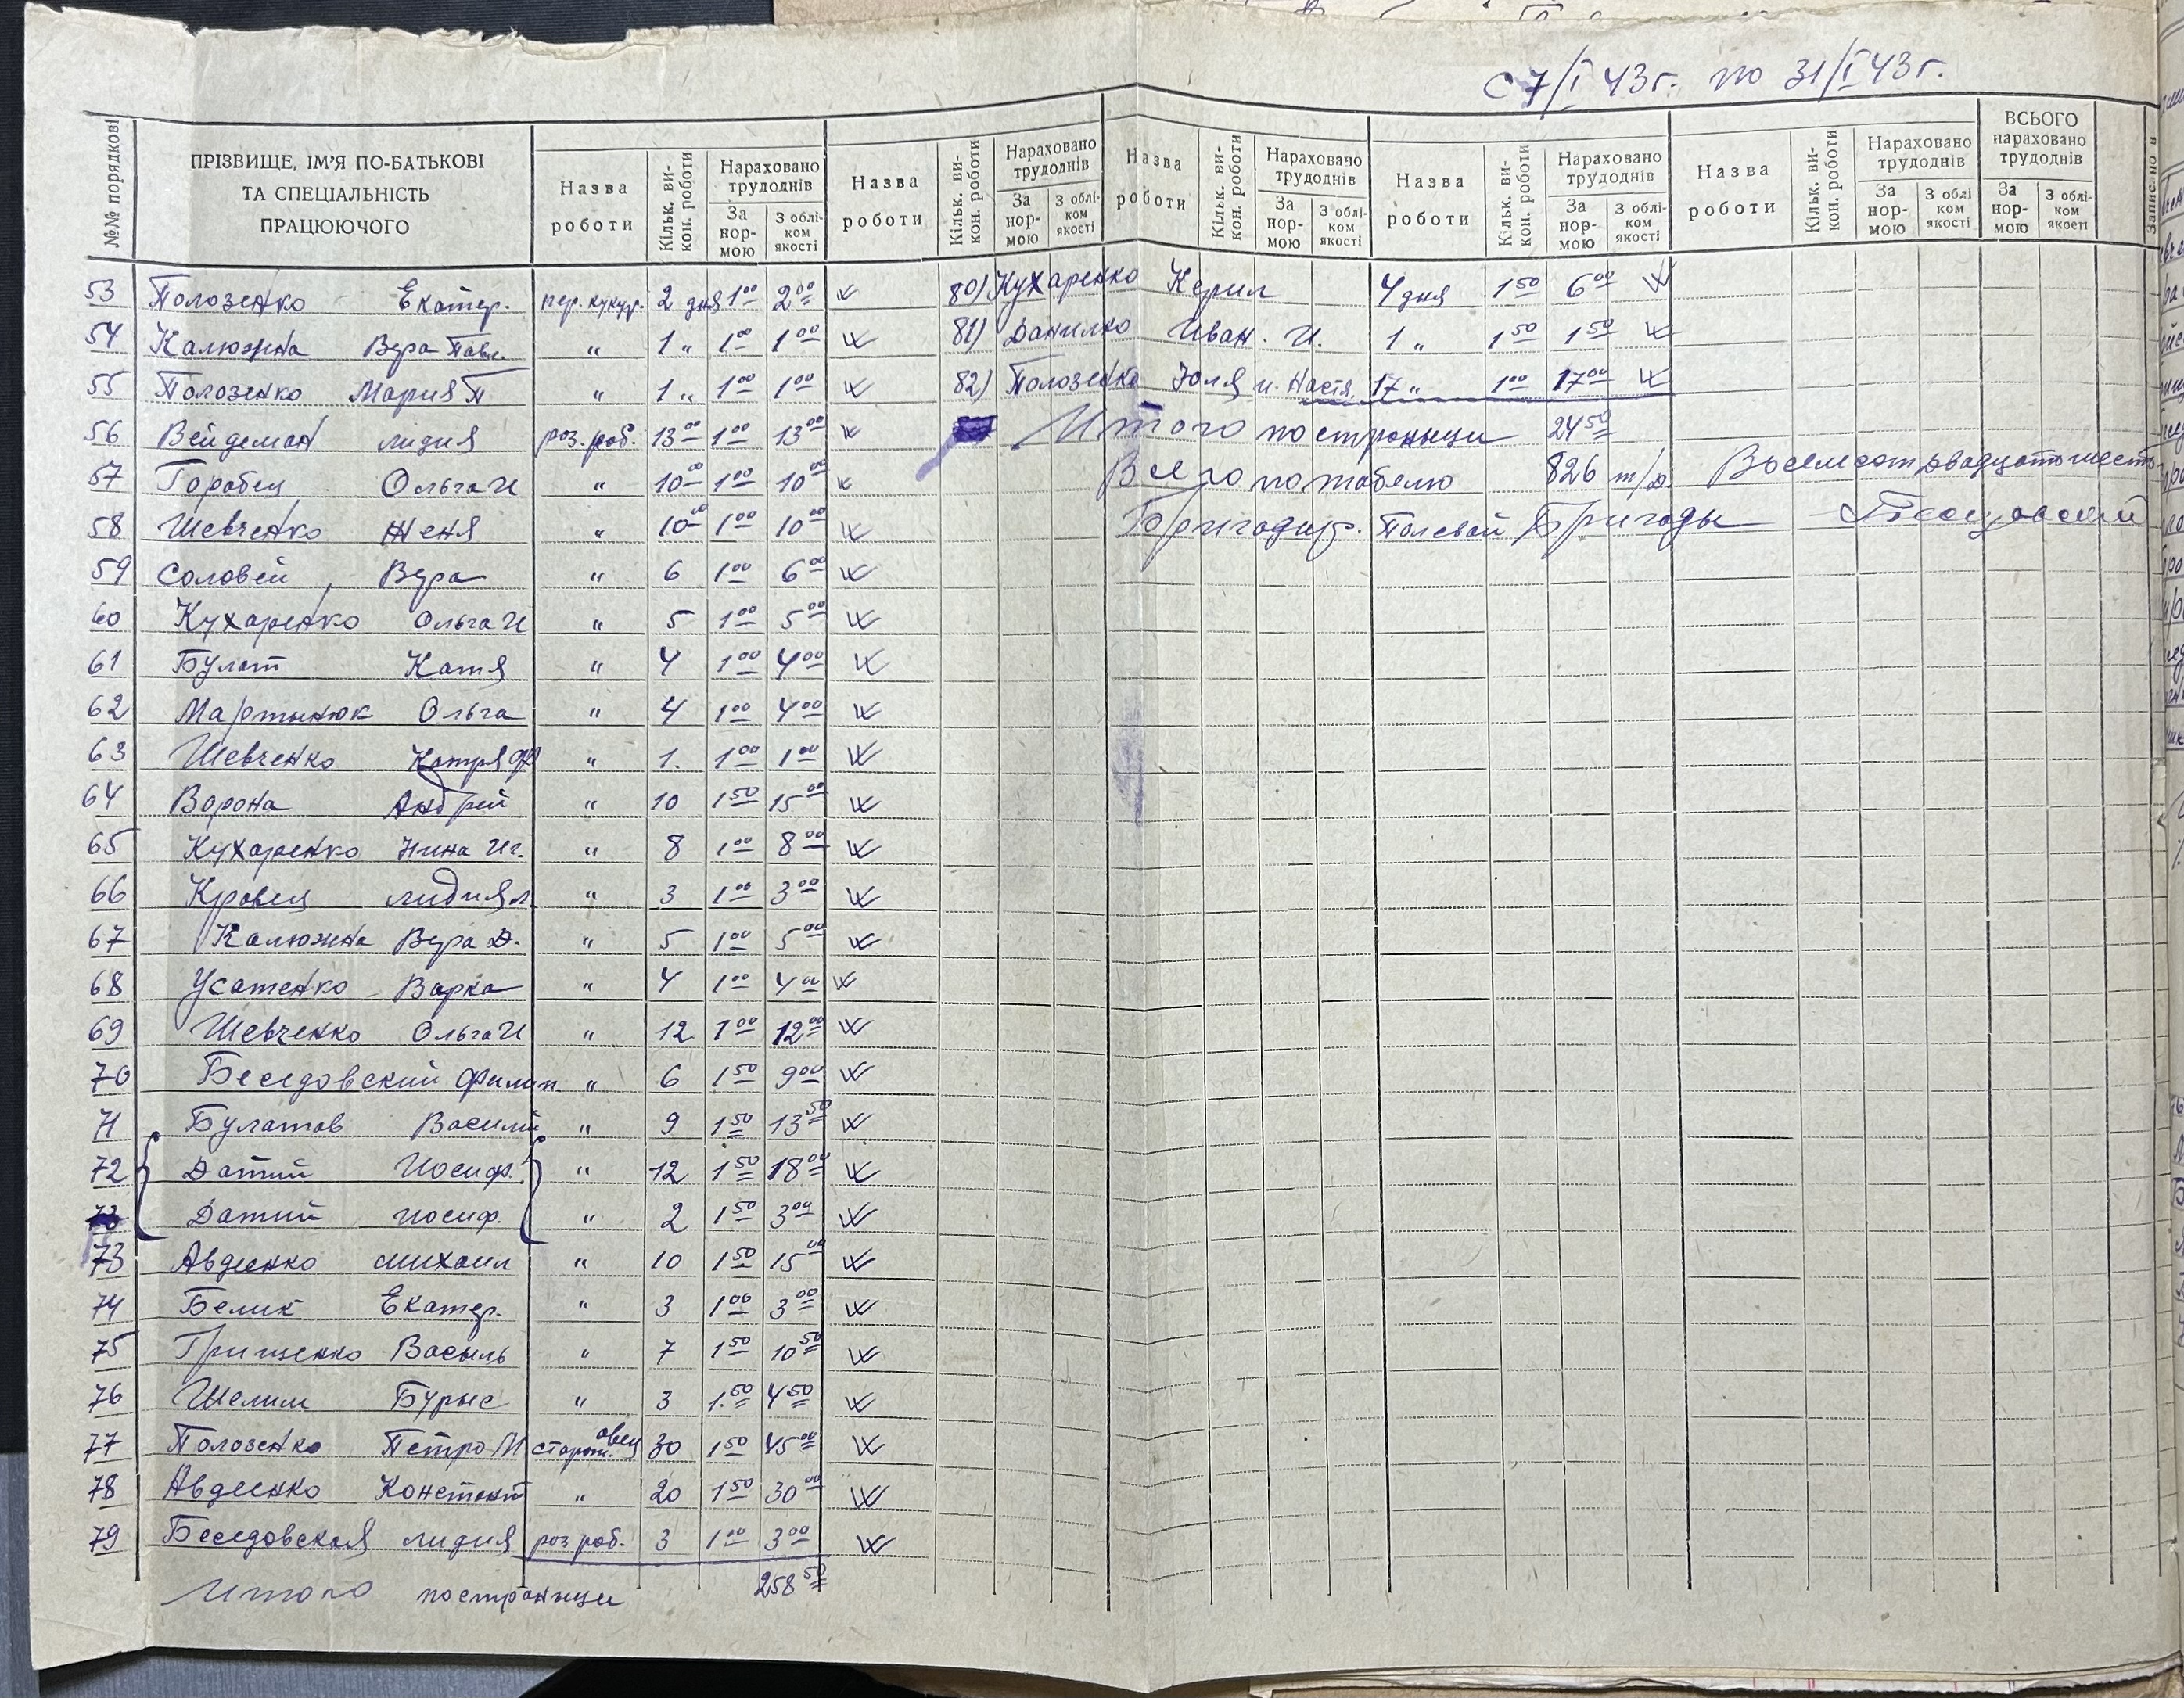 С 7/I 43 г. по 31/I 43 г.
№№ порядкові
ПРІЗВИЩЕ, ІМ'Я ПО-БАТЬКОВІ ТА СПЕЦІАЛЬНІСТЬ ПРАЦЮЮЧОГО
Назва роботи Кільк. ви- кон. роботи Нараховано трудоднів За нор- мою З облі- ком якості
Назва роботи Кільк. ви- кон. роботи Нараховано трудоднів За нор- мою З облі- ком якості
Назва роботи Кільк. ви- кон. роботи Нараховано трудоднів За нор- мою З облі- ком якості
Назва роботи Кільк. ви- кон. роботи Нараховано трудоднів За нор- мою З облі- ком якості
Назва роботи Кільк. ви- кон. роботи Нараховано трудоднів За нор- мою З облі- ком якості
ВСЬОГО нараховано трудоднів За нор- мою З облі- ком якості
Записано в
53 Полозенко Екатер. пер. кукур. 2 дня 1 00 2 00
54 Калюжна Вера Павл. " 1 " 1 00 1 00
55 Полозенко Мария П " 1 " 1 00 1 00
56 Вейдеман лидия роз. роб. 13 00 1 00 13 00
57 Горобец Ольга И " 10 00 1 00 10 00
58 Шевченко Женя " 10 00 1 00 10 00
59 Соловей Вера " 6 1 00 6 00
60 Кухаренко Ольга И " 5 1 00 5 00
61 Булат Катя " 4 1 00 4 00
62 Мартынюк Ольга " 4 1 00 4 00
63 Шевченко Катря Ф " 1. 1 00 1 00
64 Ворона Андрей " 10 1 50 15 00
65 Кухаренко Нина Иг. " 8 1 00 8 00
66 Кровец лидия л. " 3 1 00 3 00
67 Калюжна Вера Д. " 5 1 00 5 00
68 Усатенко Варка " 4 1 00 4 00
69 Шевченко Ольга И " 12 1 00 12 00
70 Беседовский Филип. " 6 1 50 9 00
71 Булатов Василий " 9 1 50 13 50
72 Датий Иосиф. " 12 1 50 18 00
Датий иосиф. " 2 1 50 3 00
73 Авдеенко михаил " 10 1 50 15 00
74 Белик Екатер. " 3 1 00 3 00
75 Грищенко Васыль " 7 1 50 10 50
76 Шелим Бурыс " 3 1. 50 4 50
77 Полозенко Петро М сторож. овец 30 1 50 45 00
78 Авдеенко Констант " 20 1 50 30 00
79 Беседовская лидия роз роб. 3 1 00 3 00
Итого постраныци 258 50
80) Кухаренко Керил 4 дня 1 50 6 00
81) Данилко Иван. И. 1 " 1 50 1 50
82) Полозенко Юля и. Настя 17 " 1 00 17 00
Итого по страныци 24 50
Всего по табелю 826 т/д. Восемсот двадцать шесть
Бригадир. Полевой Бригады